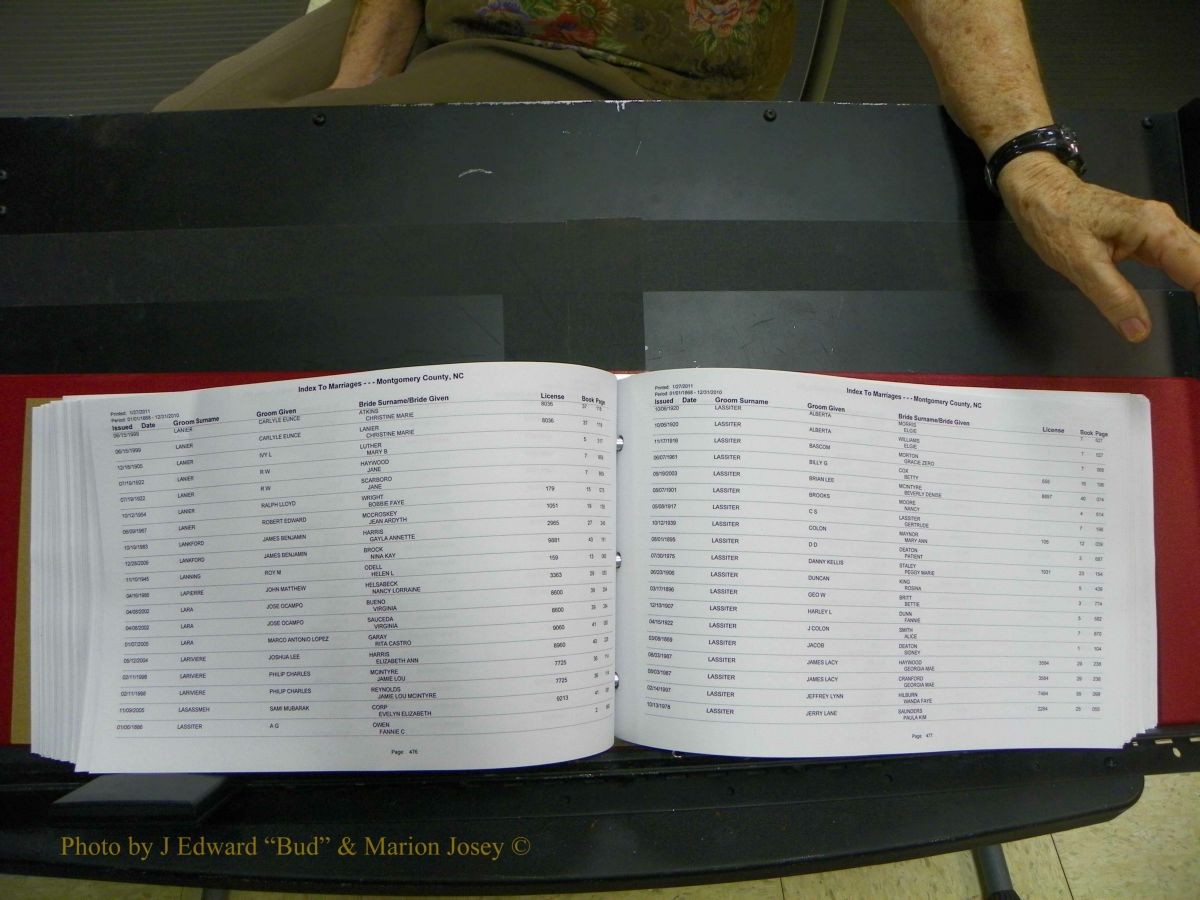 Index To Marriages - - - Montgomery County, NC
Printed: 1/27/2011
Period: 01/01/1868 - 12/31/2010
Issued Date Groom Surname Groom Given Bride Surname/Bride Given License Book Page
06/15/1999 LANIER CARLYLE EUNCE ATKINS 8036 37
CHRISTINE MARIE
06/15/1999 LANIER CARLYLE EUNCE LANIER 8036 37
CHRISTINE MARIE
12/18/1905 LANIER IVY L LUTHER 5
MARY B
07/19/1922 LANIER R W HAYWOOD 7
JANE
07/19/1922 LANIER R W SCARBORO 7
JANE
10/12/1954 LANIER RALPH LLOYD WRIGHT 179 15
BOBBIE FAYE
06/09/1967 LANIER ROBERT EDWARD MCCROSKEY 1051 19
JEAN ARDYTH
10/19/1983 LANKFORD JAMES BENJAMIN HARRIS 2965 27
GAYLA ANNETTE
12/28/2005 LANKFORD JAMES BENJAMIN BROCK 9881 43
NINA KAY
11/10/1945 LANNING ROY M ODELL 159 13
HELEN L
LAPIERRE JOHN MATTHEW HELSABECK 3363
NANCY LORRAINE
04/08/2002 LARA JOSE OCAMPO BUENO 8600 39
VIRGINIA
04/08/2002 LARA JOSE OCAMPO SAUCEDA 8600 39
VIRGINIA
01/07/2005 LARA MARCO ANTONIO LOPEZ GARAY 9060 41
RITA CASTRO
LARIVIERE JOSHUA LEE HARRIS 8960 40
ELIZABETH ANN
02/11/1998 LARIVIERE PHILIP CHARLES MCINTYRE 7725 36
JAMIE LOU
02/11/1998 LARIVIERE PHILIP CHARLES REYNOLDS 7725 36
JAMIE LOU MCINTYRE
11/09/2005 LASASSMEH SAMI MUBARAK CORP 9213 41
EVELYN ELIZABETH
LASSITER A G OWEN 2
FANNIE C
Page: 476
Printed: 1/27/2011
Period: 01/01/1868 - 12/31/2010
Index To Marriages - - - Montgomery County, NC
Issued Date Groom Surname Groom Given Bride Surname/Bride Given License Book Page
10/06/1920 LASSITER ALBERTA MORRIS 7 527
ELGIE
10/06/1920 LASSITER ALBERTA WILLIAMS 7 527
ELGIE
11/17/1918 LASSITER BASCOM MORTON 7
GRACIE ZERO
06/07/1961 LASSITER BILLY G COX 16
BETTY
LASSITER BRIAN LEE MCINTYRE 8897 40 074
BEVERLY DENISE
LASSITER BROOKS MOORE 4 514
NANCY
LASSITER C S LASSITER 7
GERTRUDE
10/12/1939 LASSITER COLON MAYNOR 12
MARY ANN
LASSITER D D DEATON
PATIENT
07/30/1975 LASSITER DANNY KELLIS STALEY 1931 23 154
PEGGY MARIE
LASSITER DUNCAN KING 5
ROSINA
03/17/1896 LASSITER GEO W BRITT 3 774
BETTIE
12/10/1907 LASSITER HARLEY L DUNN 5 582
FANNIE
04/15/1922 LASSITER J COLON SMITH 7 870
ALICE
LASSITER JACOB DEATON 1 104
SIDNEY
08/03/1987 LASSITER JAMES LACY HAYWOOD 3584 29 238
GEORGIA MAE
08/03/1987 LASSITER JAMES LACY CRANFORD 3584 29 238
GEORGIA MAE
02/14/1997 LASSITER JEFFREY LYNN HILBURN 7484 35
WANDA FAYE
10/13/1978 LASSITER JERRY LANE SAUNDERS 2284 25
PAULA KIM
Page: 477
Photo by J Edward “Bud” & Marion Josey ©